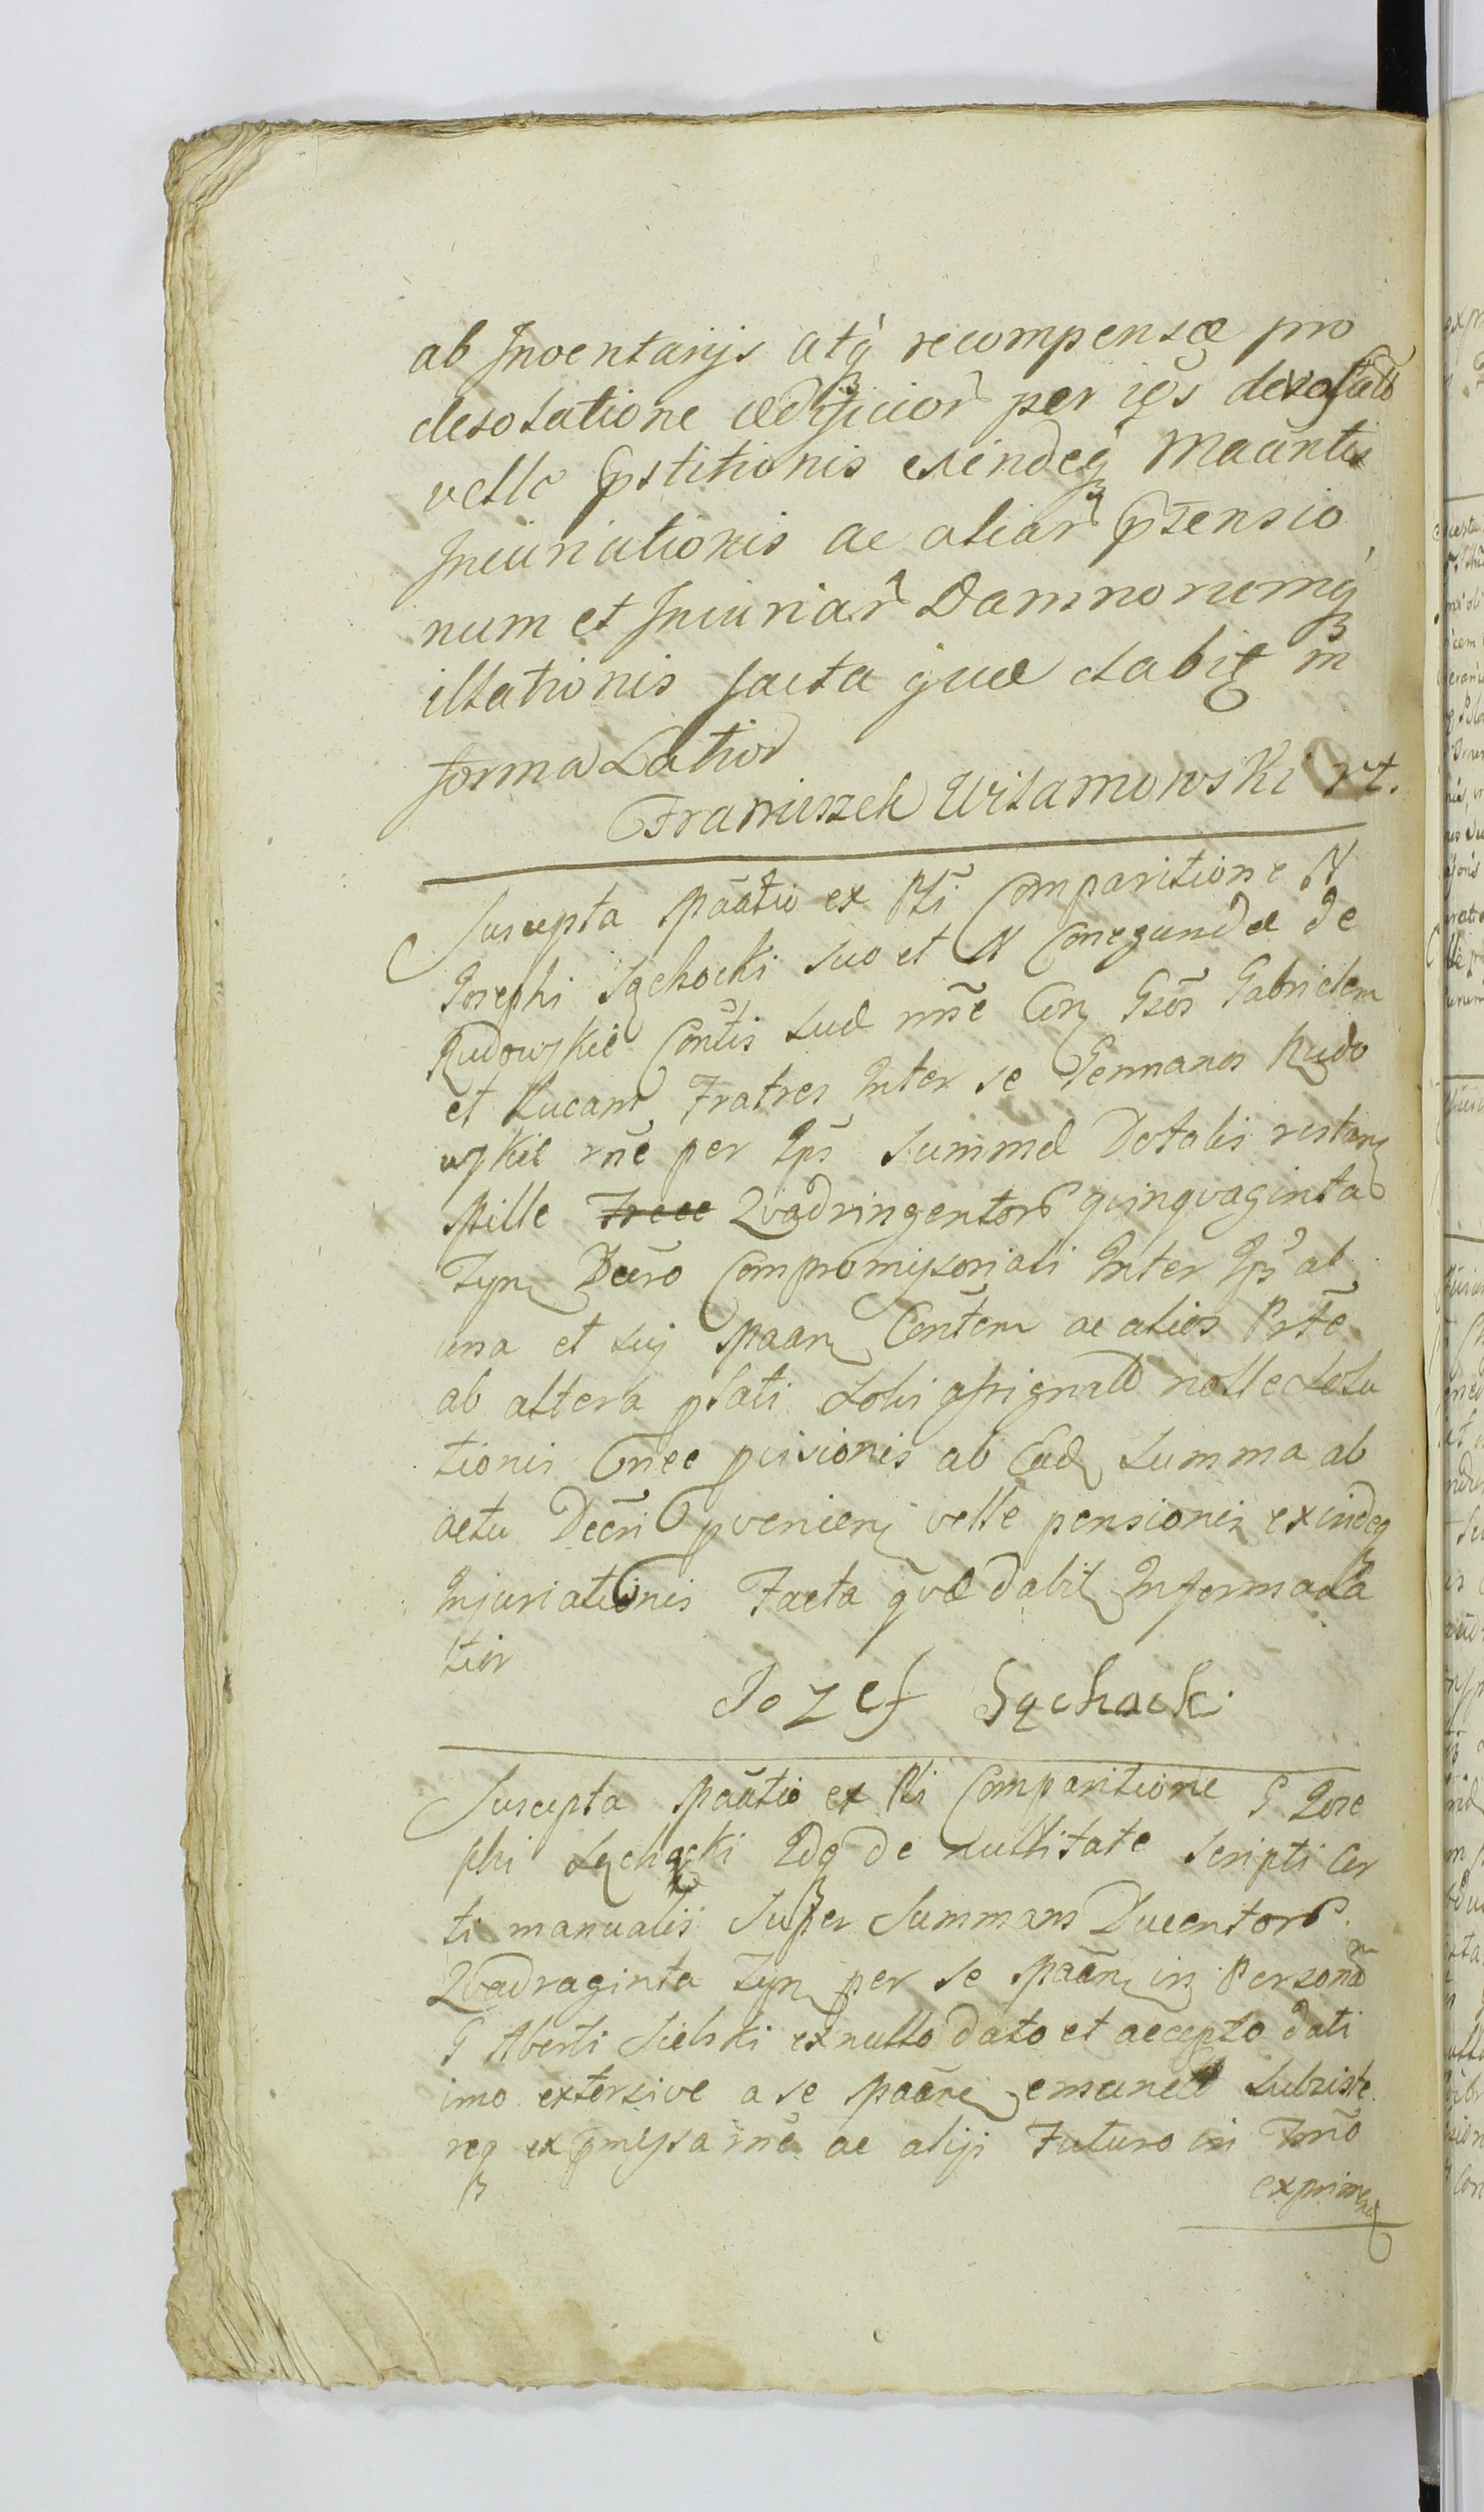 ab Inventarijs atq́ recompensæ pro
desolatione ædificior per ip̃s desolato
velle p̃stitionis exindeq́ Maãntis
Iniuriationis ac aliar p̃tensio
num et Iniuriar Damnorumq́
illationis facta quæ dabit in
forma Latior
Franciszek Wilamowski rt.
Suscepta Mãatio ex Pl̃i Comparitione N
Josephi Sąchocki suo et N Conegundæ de
Rudowskie Con̄tis suæ nñe Con Gsõs Gabrielem
et Lucam Fratres Inter se Germanos Rudo
wskie rñe per Ip̃s Summæ Dotalis restan
Mille Trece Qvadringentor qvinqvaginta
Fpn Decr̃o Compromissoriali Inter Ip̃s ab
una et sui Maan Con̄tem ac alios Prt̃e
ab altera p lati Sobi assignato nolle Solu
tionis Cn̄ee pvisionis ab Ead Summa ab
actu Decr̃i pvenien velle pensionis exindeq
Injuriationis Facta qvæ dabit In forma La
tior
Jozef Sąchocki
Suscepta Mãatio ex Pl̃i Comparitione G Jose
phi Sąchocki Idq de nullitate Scripti Cer
ti manualis Super Summam Ducentor
Qvadraginta Fpn per se Maãn in Personam
G Alberti Sielski ex nullo dato et accepto dati
imo extorsive a se Maãne emunctd Subsiste
req ex pmissa rñe ac aliji Futuro in Tmñ̃o
exprimen